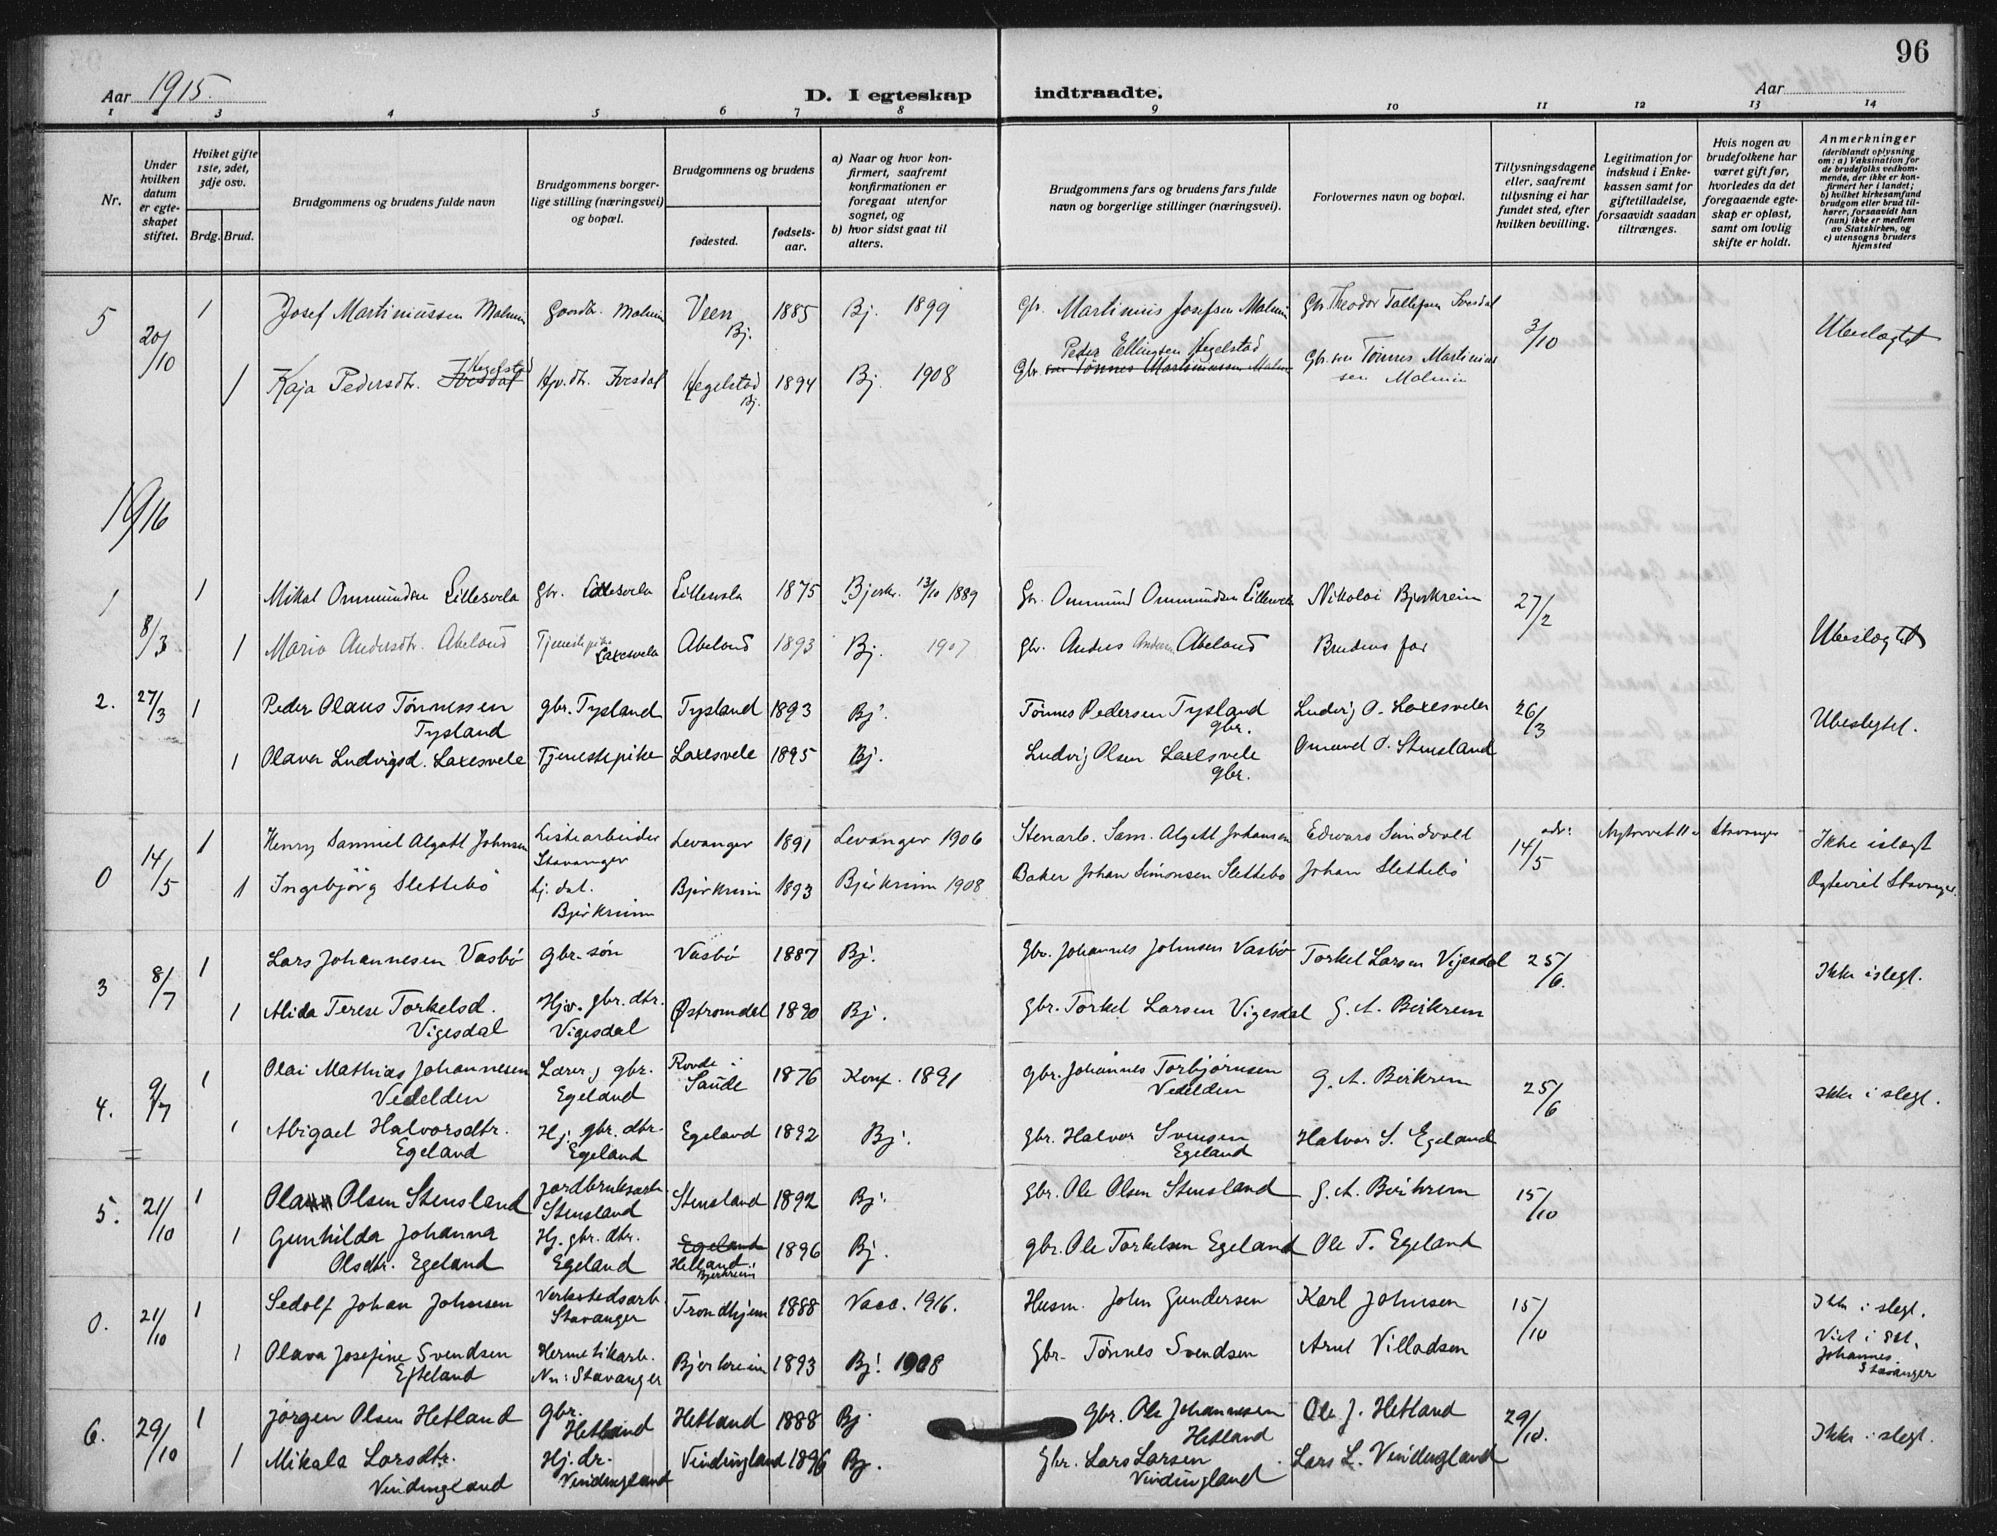 96
Aar 1915.
D. I egteskap indtraadte.
Aar
1 2 3 4 5 6 7 8 9 10 11 12 13 14
Nr.
Under hvilken datum er egte-skapet stiftet.
Hviket gifte 1ste, 2det, 3dje osv.
Brdg. Brud.
Brudgommens og brudens fulde navn
Brudgommens borger-lige stilling (næringsvei) og bopæl.
Brudgommens og brudens
fødested.
fødsels-aar.
a) Naar og hvor kon-firmert, saafremt konfirmationen er foregaat utenfor sognet, og
b) hvor sidst gaat til alters.
Brudgommens fars og brudens fars fulde navn og borgerlige stillinger (næringsvei).
Forlovernes navn og bopæl.
Tillysningsdagene eller, saafremt tillysning ei har fundet sted, efter hvilken bevilling.
Legitimation for indskud i Enke-kassen samt for giftetilladelse, forsaavidt saadan tiltrænges.
Hvis nogen av brudefolkene har været gift før, hvorledes da det foregaaende egte-skap er opløst, samt om lovlig skifte er holdt.
Anmerkninger
(deriblandt oplysning om: a) Vaksination for de brudefolks vedkom-mende, der ikke er kon-firmert her i landet; b) hvilket kirkesamfund brudgom eller brud til-hører, forsaavidt han (hun) ikke er medlem av Statskirken, og c) utensogns bruders hjemsted
5 20/10 1 Josef Martiniussen Malmin Gaardbr. Malmin Veen Bj. 1885 Bj. 1899 Gbr. Martinius Josefsen Malmin Gbr. Theodor Tallefsen Ivesdal 3/10 Ubeslægtet
1 Kaja Pedersdtr. Ivesdal Hegelstad Hjv. dtr. Ivesdal Hegelstad Bj. 1894 Bj. 1908 Gbr. Peder Ellingsen Hegelstad Gbr. søn Tønnes Martiniussen Malmin
1916
1 8/3 1 Mikal Ommundsen Lillesvela Gbr. Lillesvela Lillesvela 1875 Bjerkr. 13/10 1889 Gbr. Ommund Ommundsen Lillesvela Nikolai Bjerkreim 27/2 Ubeslægtet
1 Maria Andersdtr. Abeland Tjenestepike Laxesvela Abeland 1893 Bj. 1907 Gbr. Anders Andersen Abeland Brudens far
2. 27/3 1 Peder Olaus Tønnessen Tysland gbr. Tysland Tysland 1893 Bj. Tønnes Pedersen Tysland gbr. Ludvig O. Laxesvela 26/3 Ubeslegtet.
1 Olava Ludvigsd. Laxesvele Tjenestepike Laxesvele 1895 Bj. Ludvig Olsen Laxesvele gbr. Omund O. Stensland
0 14/5 1 Henry Samuel Algott Johnsen Listearbeider Stavanger Levanger 1891 Levanger 1906 Stenarb. Sam. Algott Johansen Edvard Sundvold 14/5 Stavanger Ikke i slægt
1 Ingebjörg Slettebö hj. dat. Bjerkreim Bjerkreim 1893 Bjerkreim 1908 Baker Johan Simonsen Slettebö Johan Slettebö Egteviet Stavanger.
3 8/7 1 Lars Johannesen Vasbø gbr. søn Vasbø 1887 Bj. Gbr. Johannes Johnsen Vasbø Torkel Larsen Vigesdal 25/6. Ikke i slegt.
1 Alida Terese Torkelsd. Vigesdal Hjv. gbr. dtr. Vigesdal Østromdal 1890 Bj. Gbr. Torkel Larsen Vigesdal G. A. Birkrem
4. 9/7 1 Olai Mathias Johannesen Vedelden Lærer, gbr. Egeland Rovde i Saude 1876 Konf. 1891 gbr. Johannes Torbjørnsen Vedelden G. A. Birkrem 25/6 Ikke i slegt.
1 Abigael Halvorsdtr. Egeland Hj. gbr. dtr. Egeland Egeland 1892 Bj. gbr. Halvor Svensen Egeland Halvor S. Egeland
5. 21/10 1 Ola Olsen Stensland Jordbruksarb. Stensland Stensland 1892 Bj. gbr. Ole Olsen Stensland G. A. Birkrem 15/10
1 Gunhilda Johanna Olsdtr. Egeland Hj. gbr. dtr. Egeland Egeland Helland i Bjerkreim 1896 Bj. gbr. Ole Torkelsen Egeland Ole T. Egeland
0. 21/10 1 Sedolf Johan Johnsen Verkstedsarb. Stavanger Trondhjem 1888 Vacc. 1916. Husm. John Gundersen Karl Johnsen 15/10 Ikke i slegt.
1 Olava Josefine Svendsen Efteland Hermetikarb. Nu: Stavanger Bjerkreim 1893 Bj. 1908 Gbr. Tønnes Svendsen Arnt Villadsen Viet i Skt. Johannes Stavanger
6. 29/10 1 Jørgen Olsen Hetland gbr. Hetland Hetland 1888 Bj. Gbr. Ole Johannesen Hetland Ole J. Hetland 29/10. Ikke i slegt.
1 Mikale Larsdtr. Vindingland Hj. dr. Vindingland Vindingland 1896 Bj. Gbr. Lars Larsen Vindingland Lars L. Vindingland